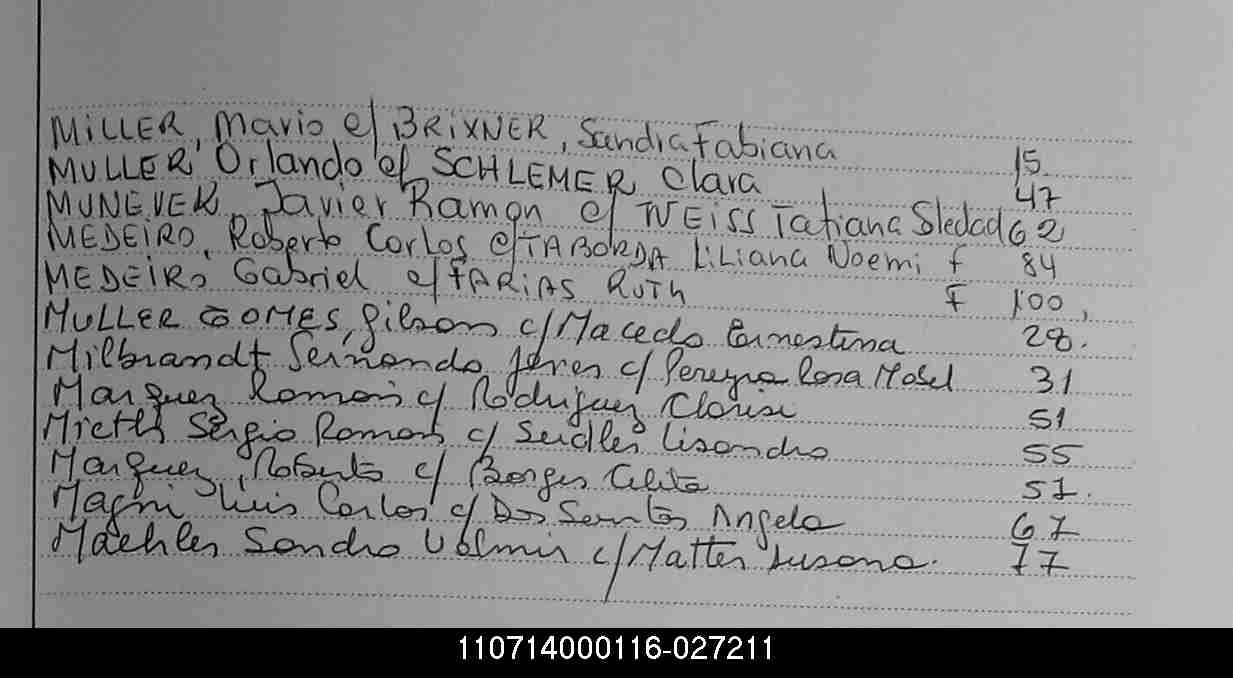 MiLLER, Mario c/ BRiXNER, Sandra Fabiana 15
MULLER, Orlando c/ SCHLEMER, Clara 47
MUNEVER, Javier Ramon c/ WEiSS Tatiana Sledad 62
MEDEiRO, Roberto Carlos c/ TABORDA LiLiana Noemi f 84
MEDEiRO Gabriel c/ FARiAS RuTh F 100,
MULLER GOMES, Gilson c/ Macedo Ernestina 28.
Milbrandt Fernando c/ Pereyra Rosa Mabel 31
Marquez Ramon c/ Rodriguez Clarisa 51
Mieth Sergio Ramon c/ Seidler Lisandra 55
Marquez, Roberto c/ Borges Celita 57.
Magni Luis Carlos c/ Dos Santos Angela 67
Maehler Sandro Valmir c/ Matter Susana. 77
110714000116-027211